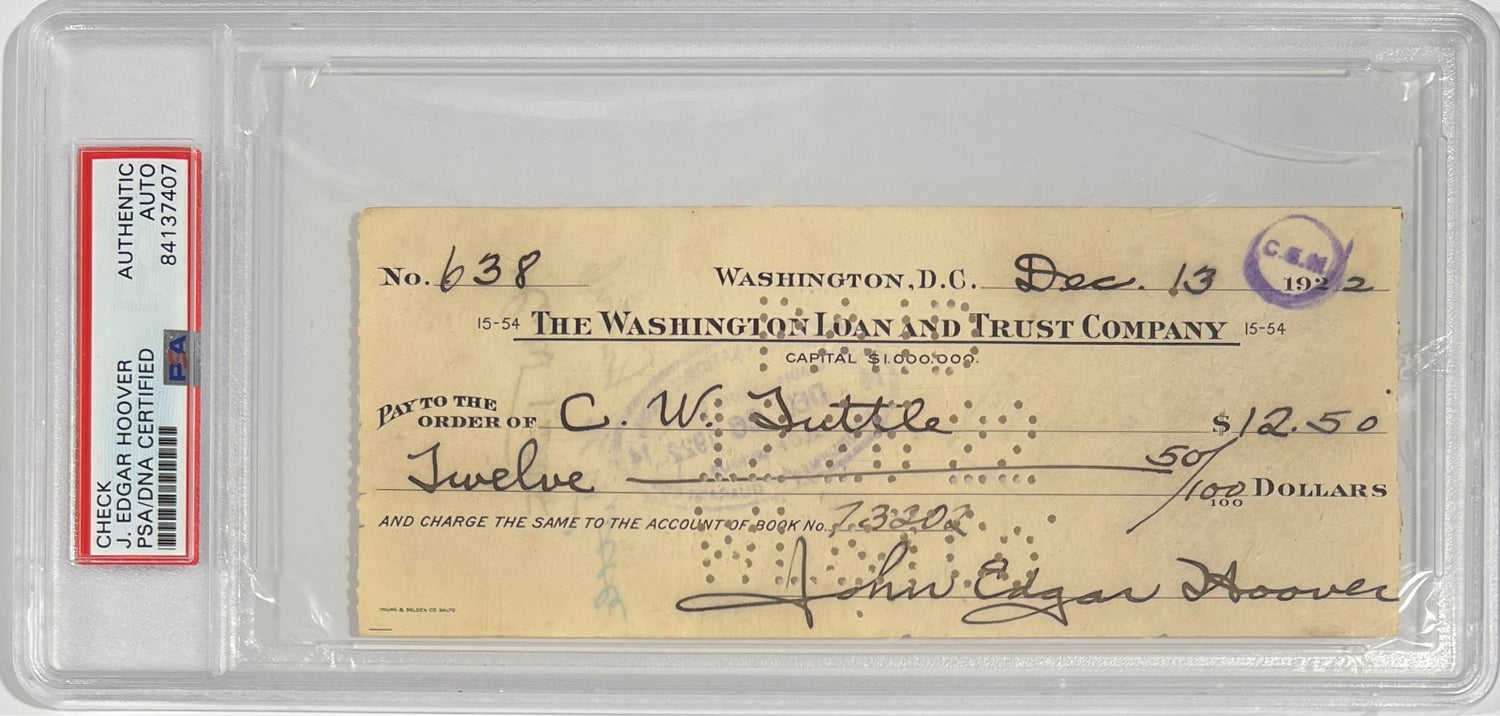 CHECK AUTHENTIC
J. EDGAR HOOVER AUTO
PSA/DNA CERTIFIED 84137407
PSA
No. 638 WASHINGTON, D.C. Dec. 13 1922
C.S.M.
15-54 THE WASHINGTON LOAN AND TRUST COMPANY 15-54
CAPITAL $1.000.000.
PAY TO THE ORDER OF C. W. Tuttle $12.50
Twelve 50/100 DOLLARS
100
AND CHARGE THE SAME TO THE ACCOUNT OF BOOK No. 73202
John Edgar Hoover
YOUNG & SELDEN CO. BALTO.